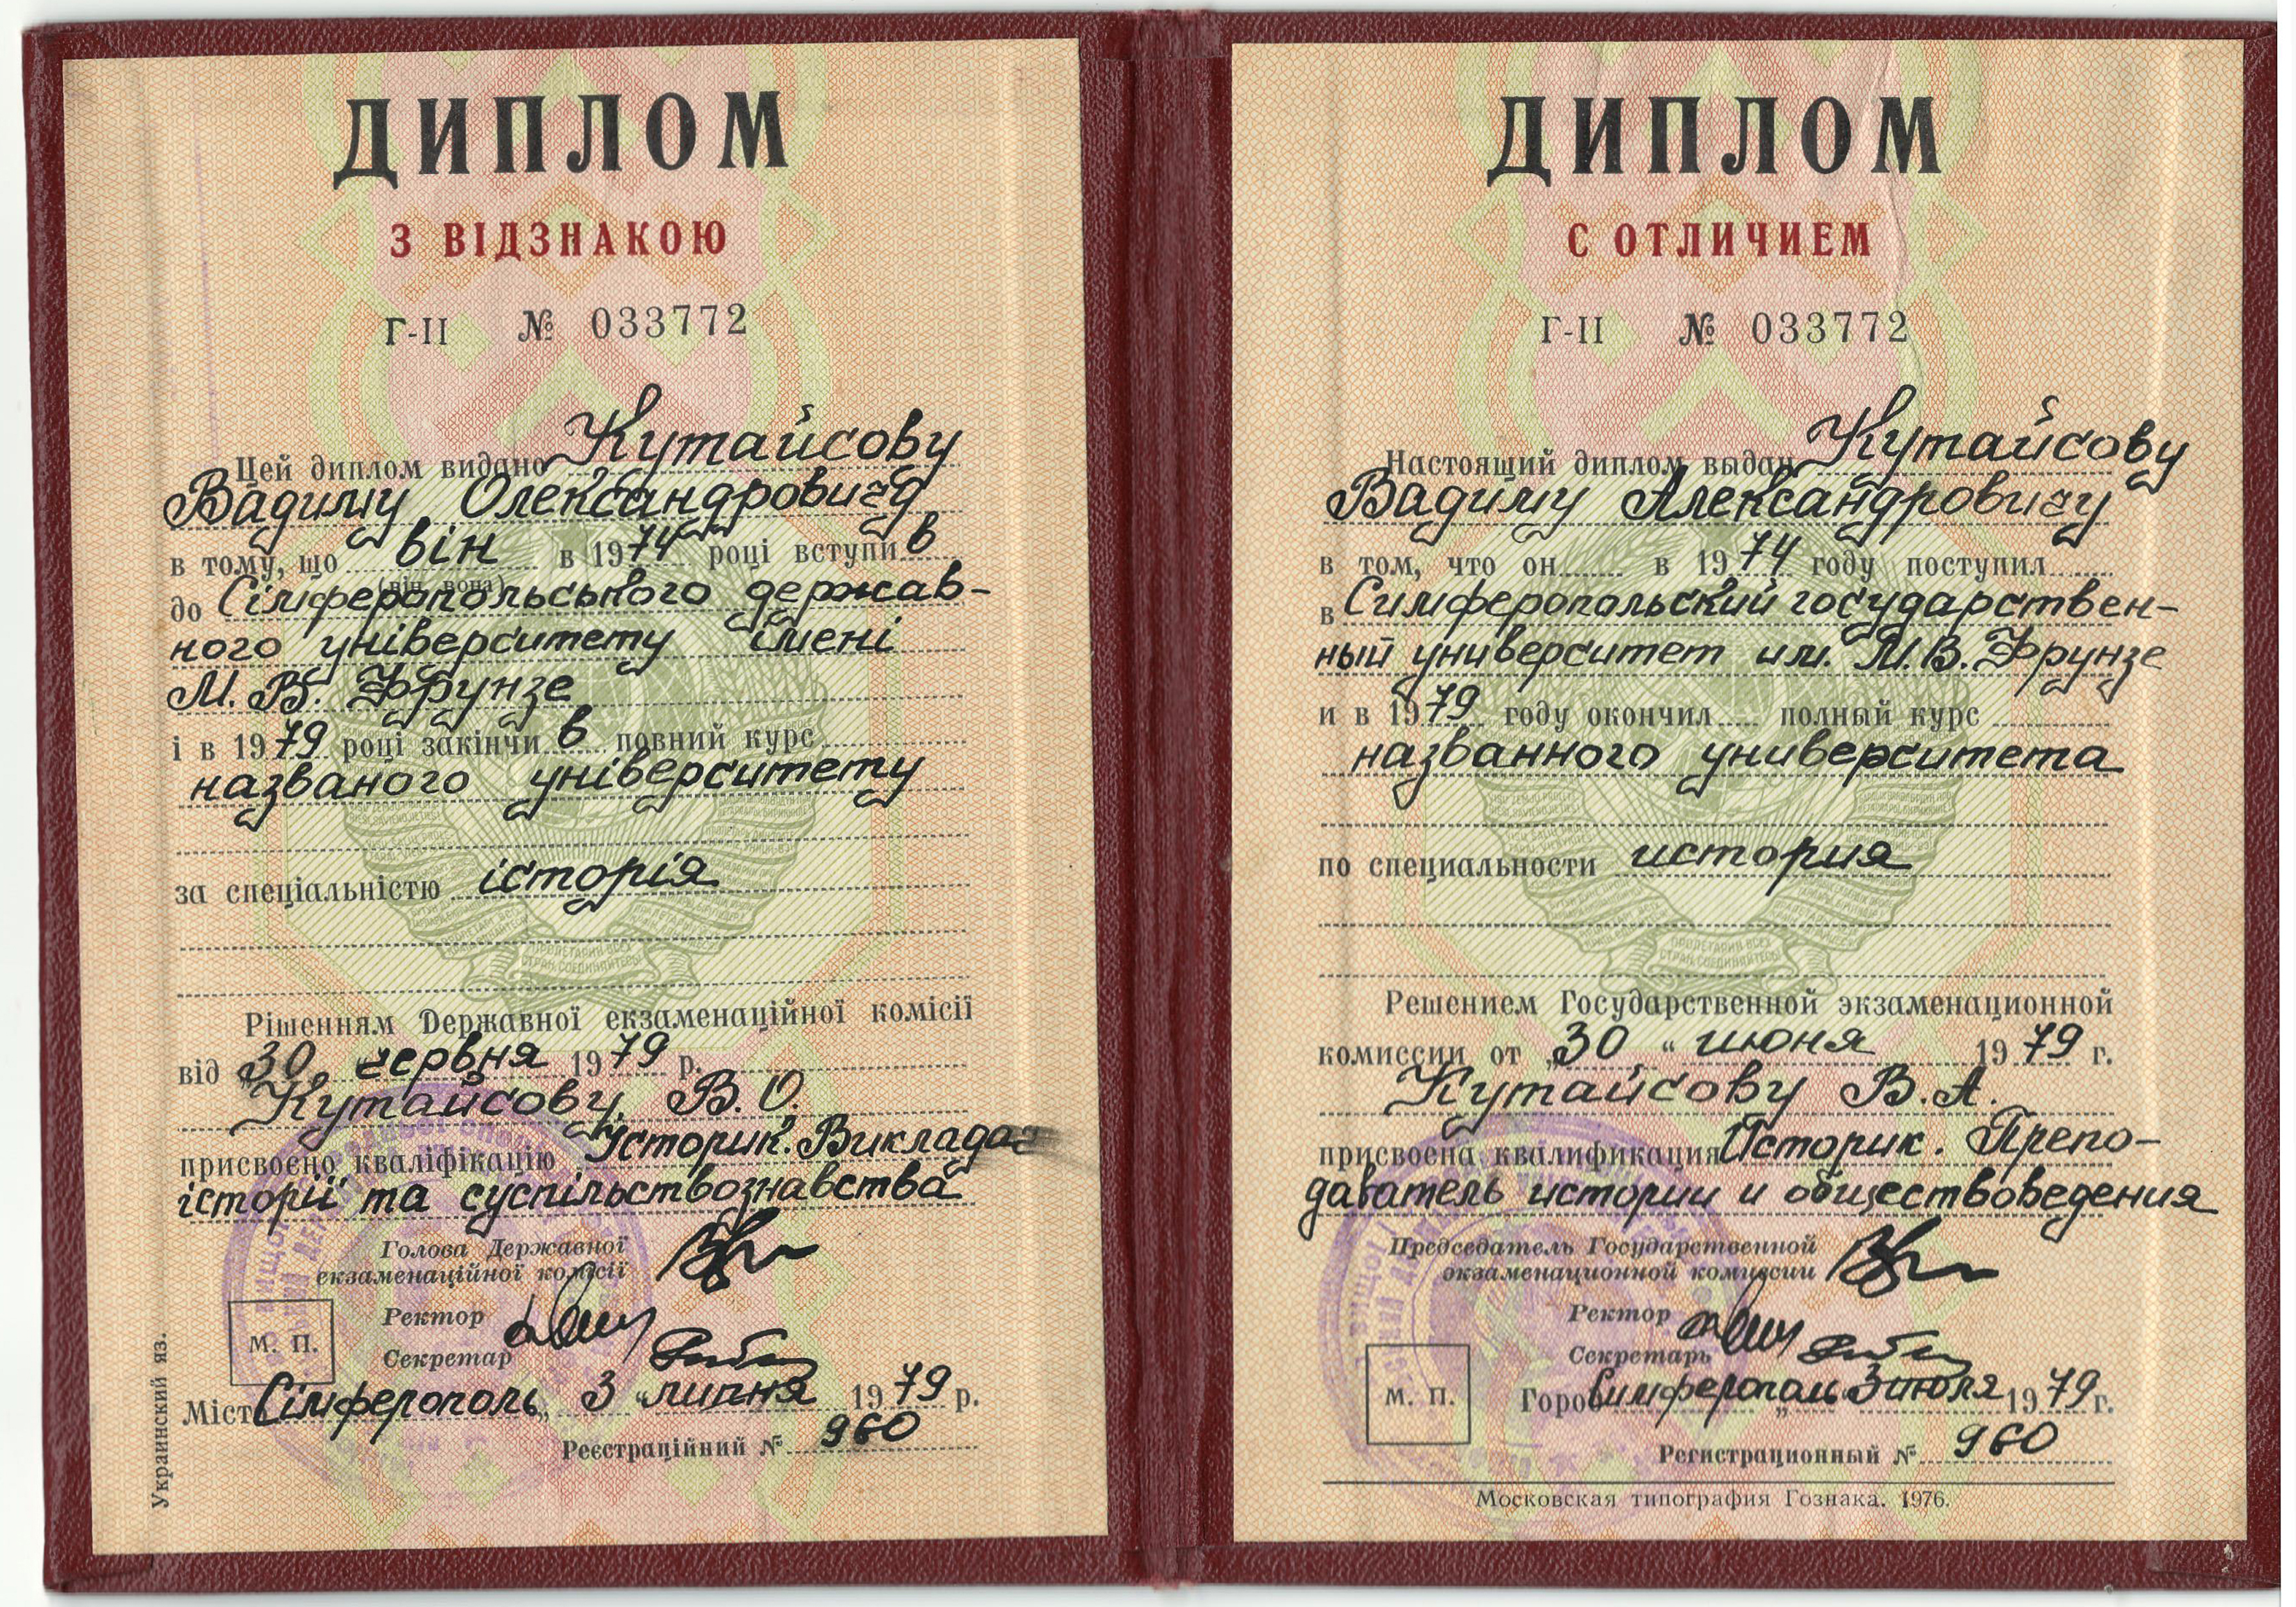 ДИПЛОМ
З ВІДЗНАКОЮ
Г-II № 033772
Цей диплом видано Кутайсову
Вадиму Олександровичу
в тому, що він в 1974 році вступив
(він, вона)
до Сімферопольського держав-
ного університету імені
М. В. Фрунзе
і в 1979 році закінчив повний курс
названого університету
за спеціальністю історія
Рішенням Державної екзаменаційної комісії
від „30 червня 1979 р.
Кутайсову В. О.
присвоєно кваліфікацію Історик. Викладач
історії та суспільствознавства
Голова Державної
екзаменаційної комісії
Ректор
Секретар
М. П.
Місто Сімферополь „3“ липня 1979 р.
Реєстраційний № 960
Украинский яз.
ДИПЛОМ
С ОТЛИЧИЕМ
Г-II № 033772
Настоящий диплом выдан Кутайсову
Вадиму Александровичу
в том, что он в 1974 году поступил
в Симферопольский государствен-
ный университет им. М. В. Фрунзе
и в 1979 году окончил полный курс
названного университета
по специальности история
ПРОЛЕТАРИИ ВСЕХ
СТРАН, СОЕДИНЯЙТЕСЬ!
Решением Государственной экзаменационной
комиссии от „30“ июня 1979 г.
Кутайсову В. А.
присвоена квалификация Историк. Препо-
даватель истории и обществоведения
Председатель Государственной
экзаменационной комиссии
Ректор
Секретарь
М. П.
Город Симферополь „3 июля 1979 г.
Регистрационный № 960
Московская типография Гознака. 1976.